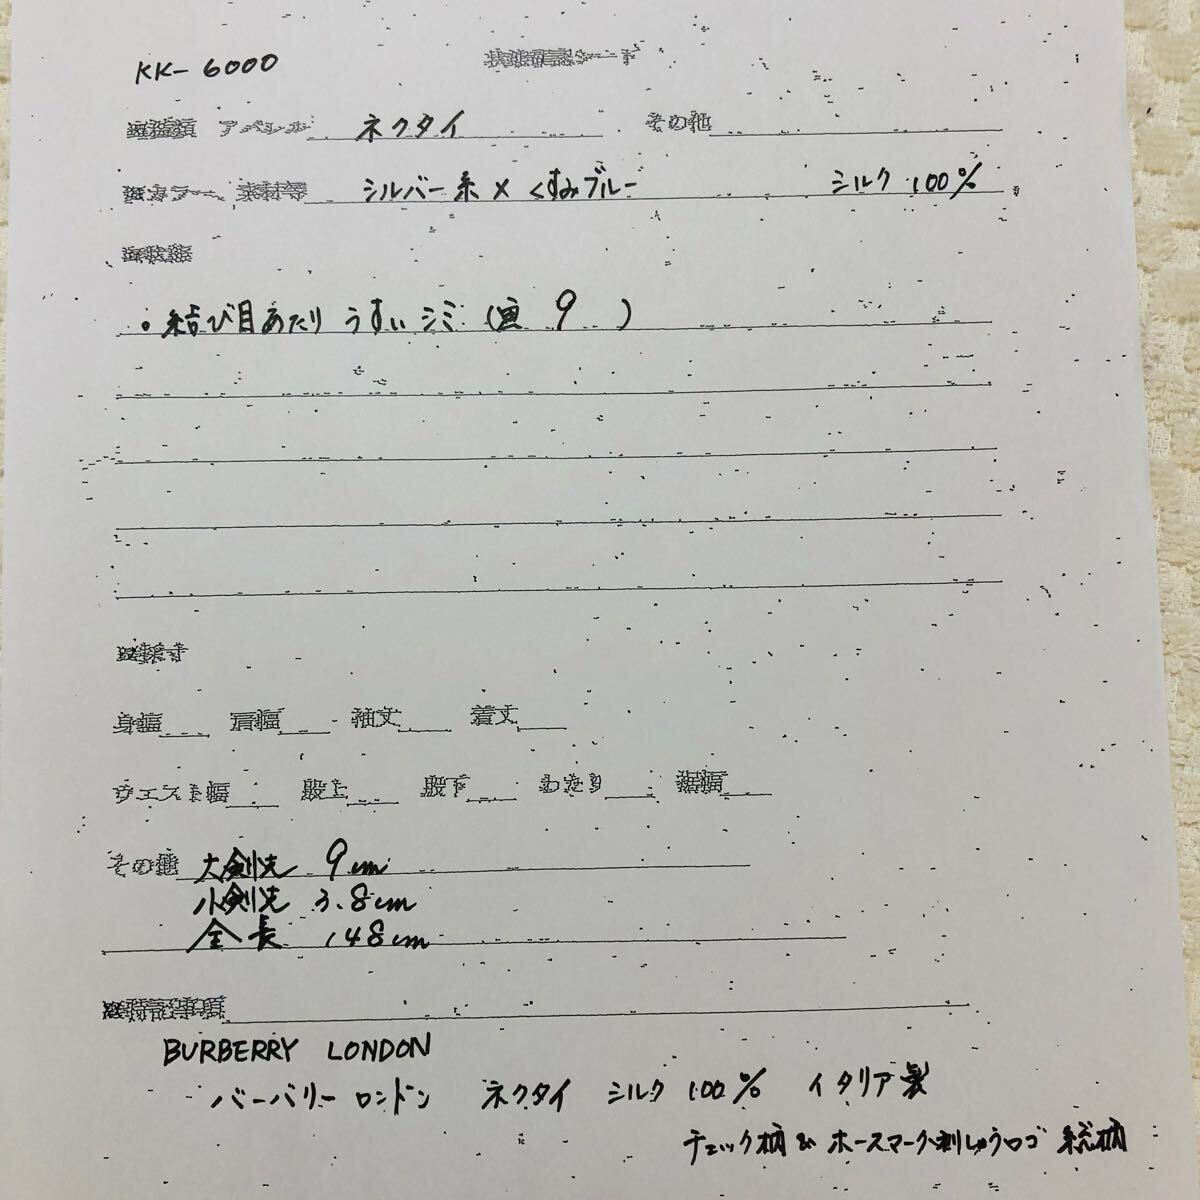 KK-6000
ネクタイ その他
シルバー系×くすみブルー シルク 100%
・結び目あたり うすいシミ (画 9 )
身幅 肩幅 袖丈 着丈
ウエスト幅 股上 股下 わたり 裾幅
その他 大剣先 9cm
小剣先 3.8cm
全長 148cm
特記事項
BURBERRY LONDON
バーバリーロンドン ネクタイ シルク 100% イタリア製
チェック柄& ホースマーク刺しゅうロゴ 総柄